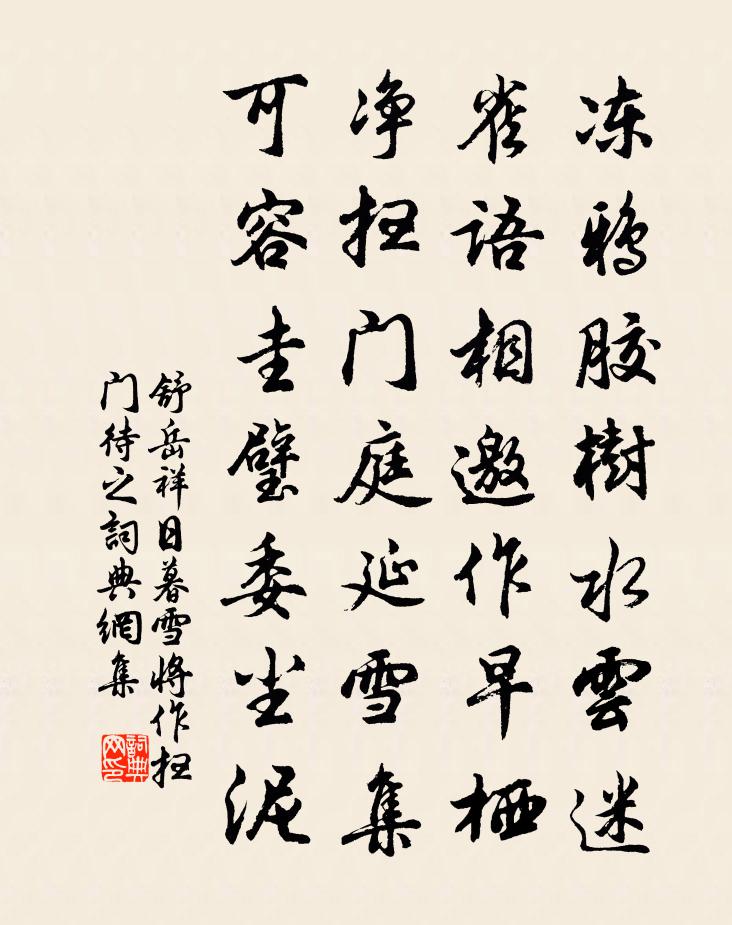 冻鸦胶樹水雲迷
雀语相邀作早栖
净扫门庭延雪集
可容圭璧委尘泥
舒岳祥日暮雪將作扫
门待之詞典網集
詞典网印